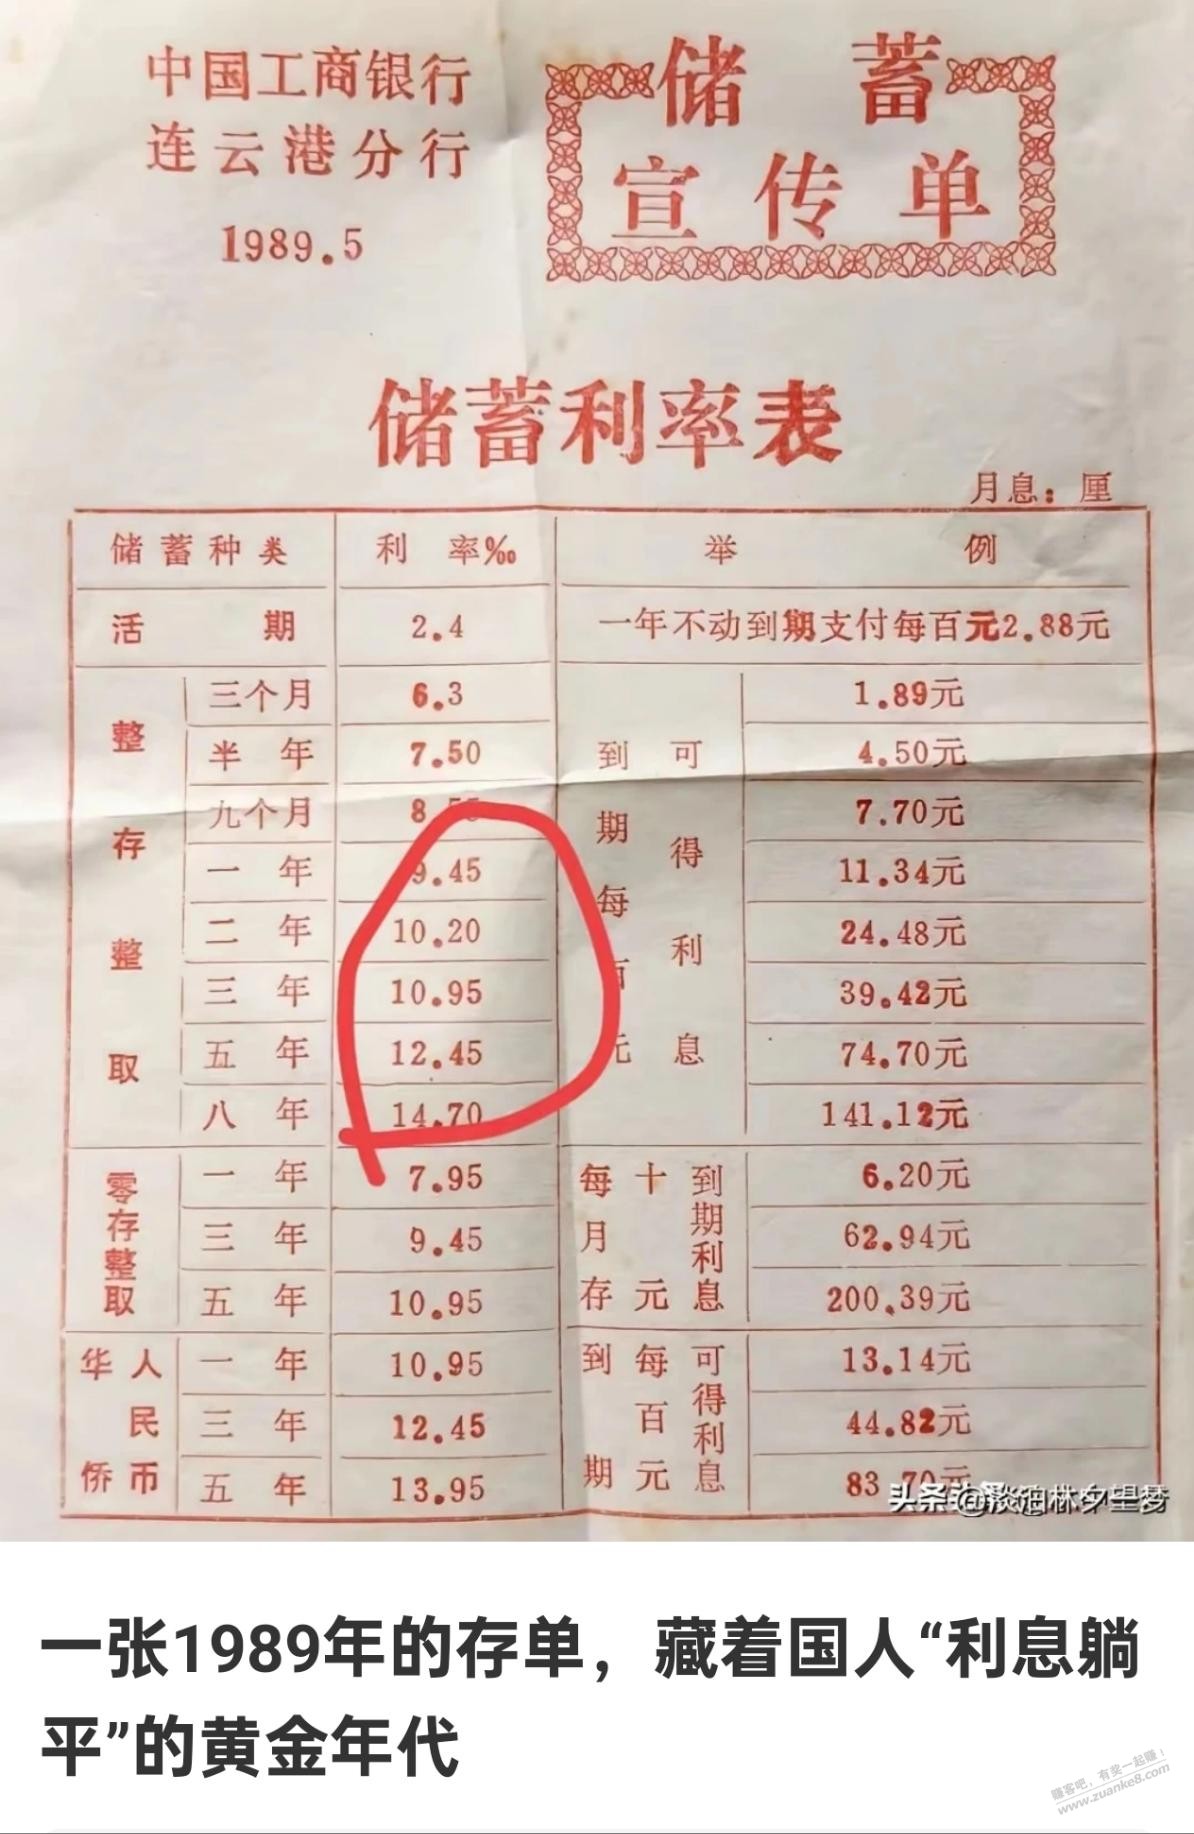 中国工商银行
连云港分行
1989.5
储蓄
宣传单
储蓄利率表
月息：厘
储蓄种类 利率‰ 举例
活期 2.4 一年不动到期支付每百元2.88元
整存整取 到期每百元可得利息
三个月 6.3 1.89元
半年 7.50 4.50元
九个月 8.55 7.70元
一年 9.45 11.34元
二年 10.20 24.48元
三年 10.95 39.42元
五年 12.45 74.70元
八年 14.70 141.12元
零存整取 每月存十元到期利息
一年 7.95 6.20元
三年 9.45 62.94元
五年 10.95 200.39元
华侨人民币 到期每百元可得利息
一年 10.95 13.14元
三年 12.45 44.82元
五年 13.95 83.70元
头条
一张1989年的存单，藏着国人“利息躺
平”的黄金年代
赚客吧，有奖一起赚！
www.zuanke8.com